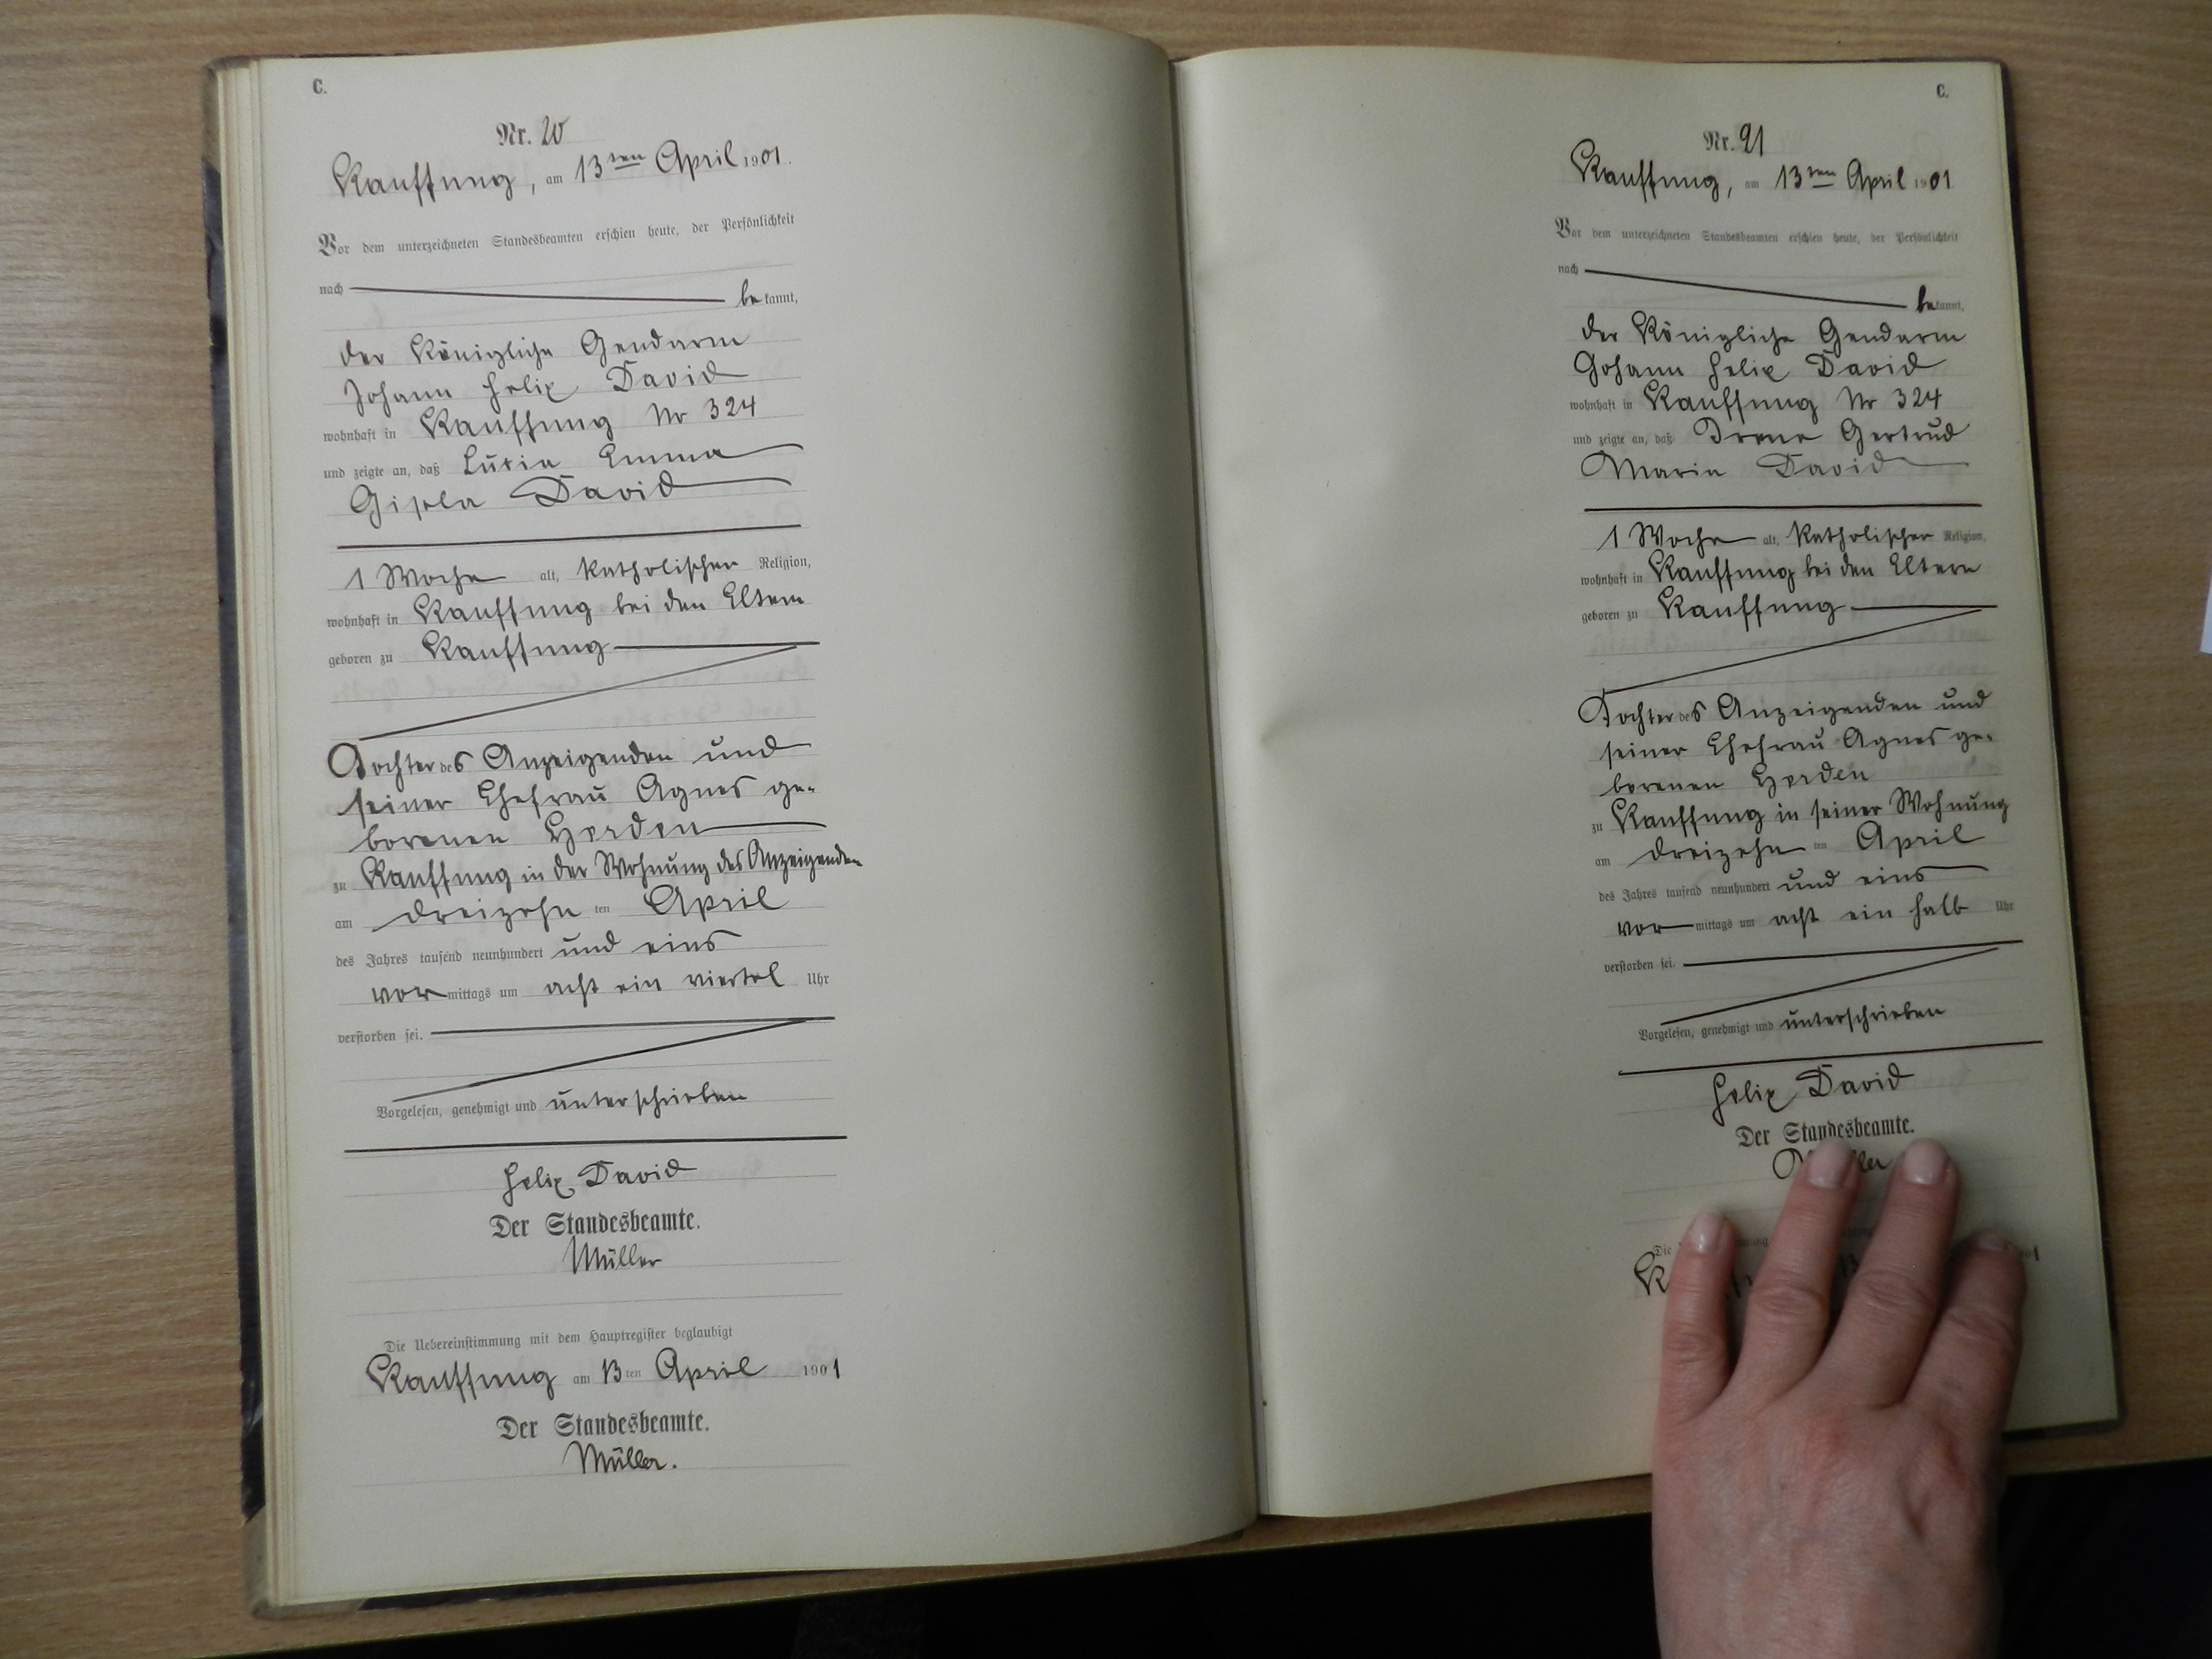 C.
Nr. 20
Kauffung, am 13ten April 1901.
Vor dem unterzeichneten Standesbeamten erschien heute, der Persönlichkeit
nach bekannt,
der Königliche Gendarm
Johann Felix David
wohnhaft in Kauffung Nr 324
und zeigte an, daß Luzia Emma
Gisela David
1 Woche alt, katholischer Religion,
wohnhaft in Kauffung bei den Eltern
geboren zu Kauffung
Tochter des Anzeigenden und
seiner Ehefrau Agnes ge-
borenen Herden
zu Kauffung in der Wohnung des Anzeigenden
am dreizehn ten April
des Jahres tausend neunhundert und eins
vormittags um acht ein viertel Uhr
verstorben sei.
Vorgelesen, genehmigt und unterschrieben
Felix David
Der Standesbeamte.
Müller
Die Uebereinstimmung mit dem Hauptregister beglaubigt
Kauffung am 13ten April 1901
Der Standesbeamte.
Müller.
C.
Nr. 21
Kauffung, am 13ten April 1901.
Vor dem unterzeichneten Standesbeamten erschien heute, der Persönlichkeit
nach bekannt,
der Königliche Gendarm
Johann Felix David
wohnhaft in Kauffung Nr 324
und zeigte an, daß Irene Gertrud
Maria David
1 Woche alt, katholischer Religion,
wohnhaft in Kauffung bei den Eltern
geboren zu Kauffung
Tochter des Anzeigenden und
seiner Ehefrau Agnes ge-
borenen Herden
zu Kauffung in seiner Wohnung
am dreizehn ten April
des Jahres tausend neunhundert und eins
vormittags um acht ein halb Uhr
verstorben sei.
Vorgelesen, genehmigt und unterschrieben
Felix David
Der Standesbeamte.
Die